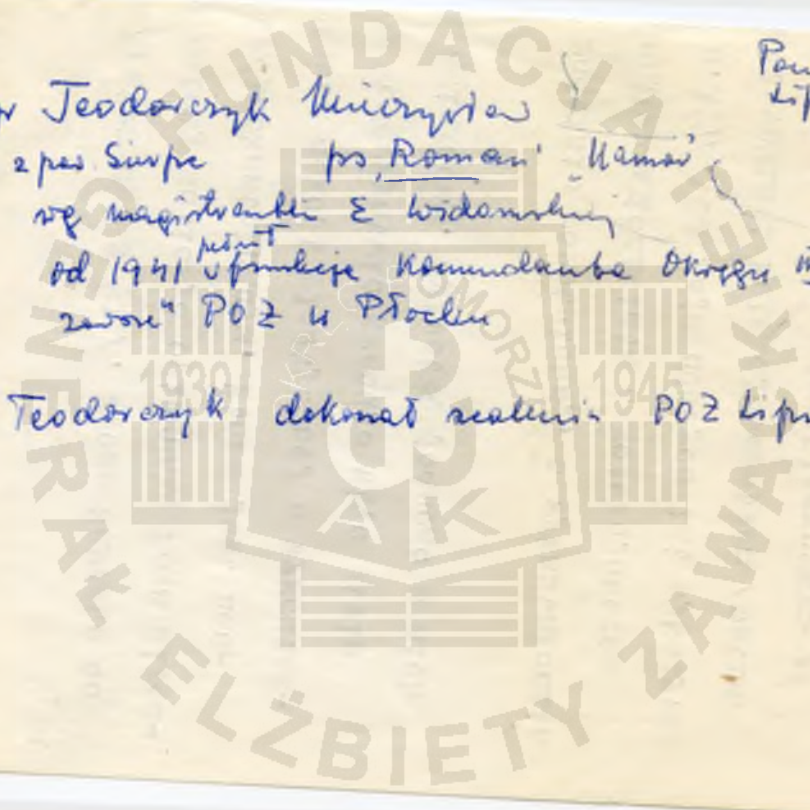 Pow
Lip
Teodorczyk Mieczysław
z pow. Sierpc ps. "Roman" "Kamař"
wg magistrantki E Widomskiej
pełnił
od 1941 funkcję Komendanta Okręgu
POZ w Płocku
Teodorczyk dokonał scalenia POZ Lipn
FUNDACJA GENERAŁ ELŻBIETY ZAWACKIEJ
OKRĘG POMORZE
1939 1945
AK